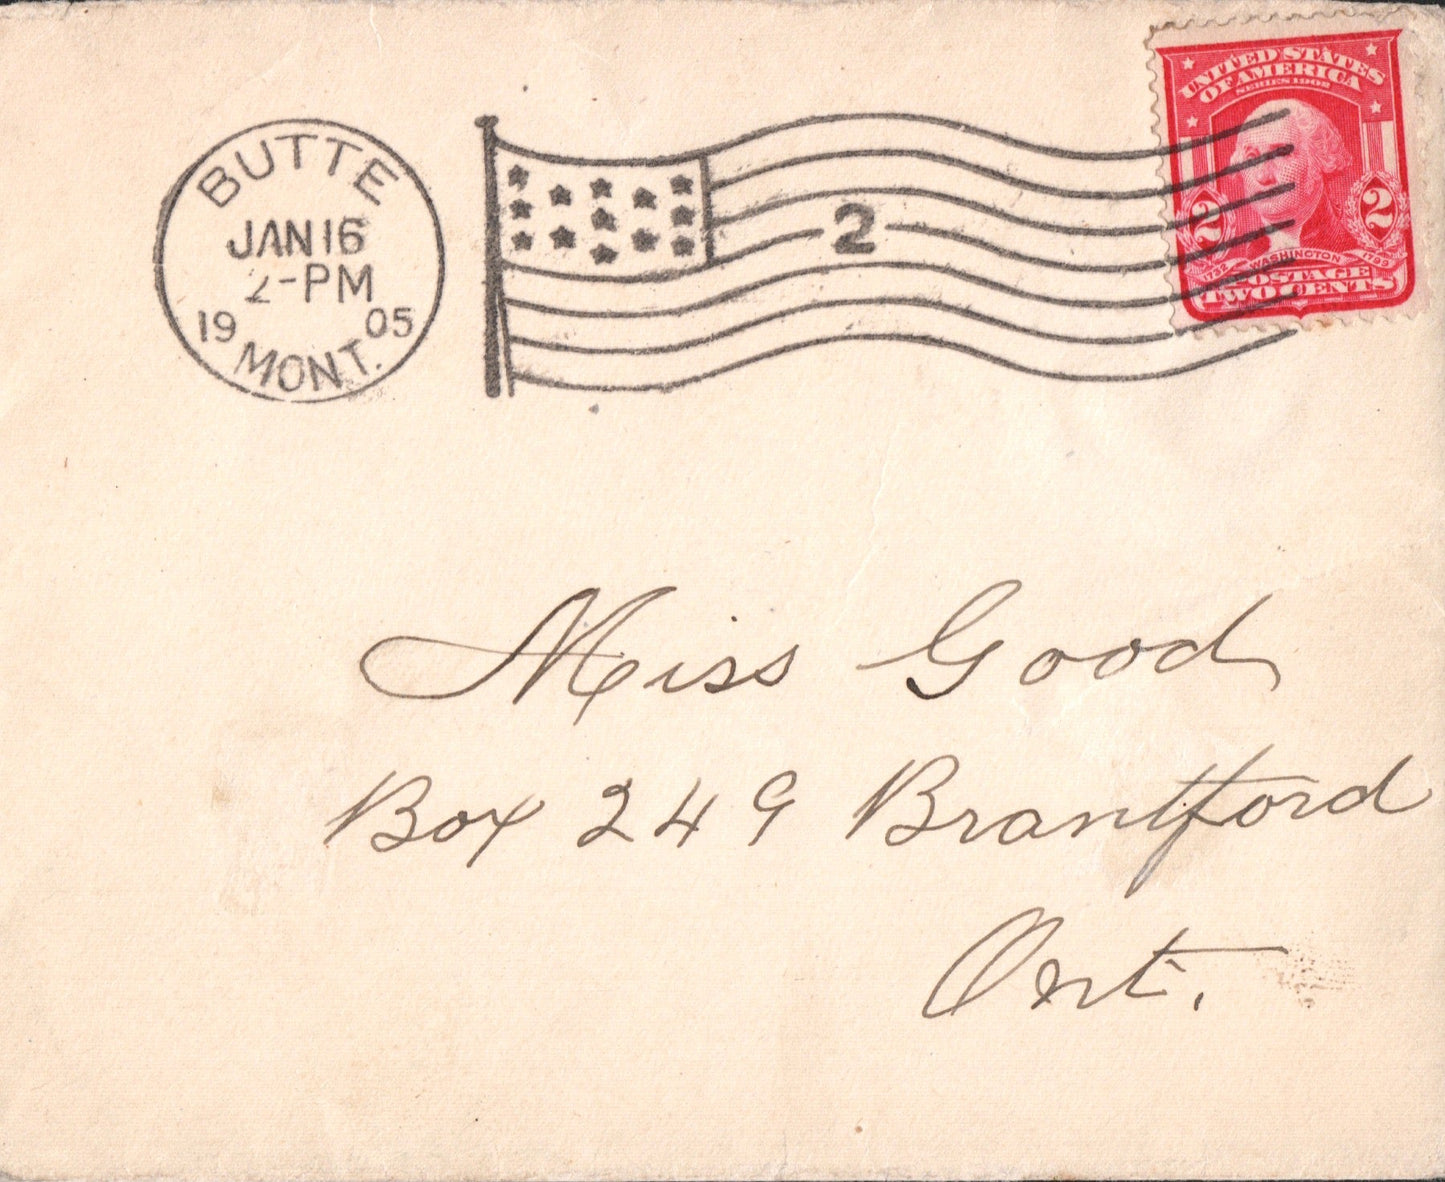 BUTTE
JAN 16
2-PM
19 05
MONT.
2
UNITED STATES
OF AMERICA
SERIES 1902
2 2
1732 WASHINGTON 1799
POSTAGE
TWO CENTS
Miss Good
Box 249 Brantford
Ont.